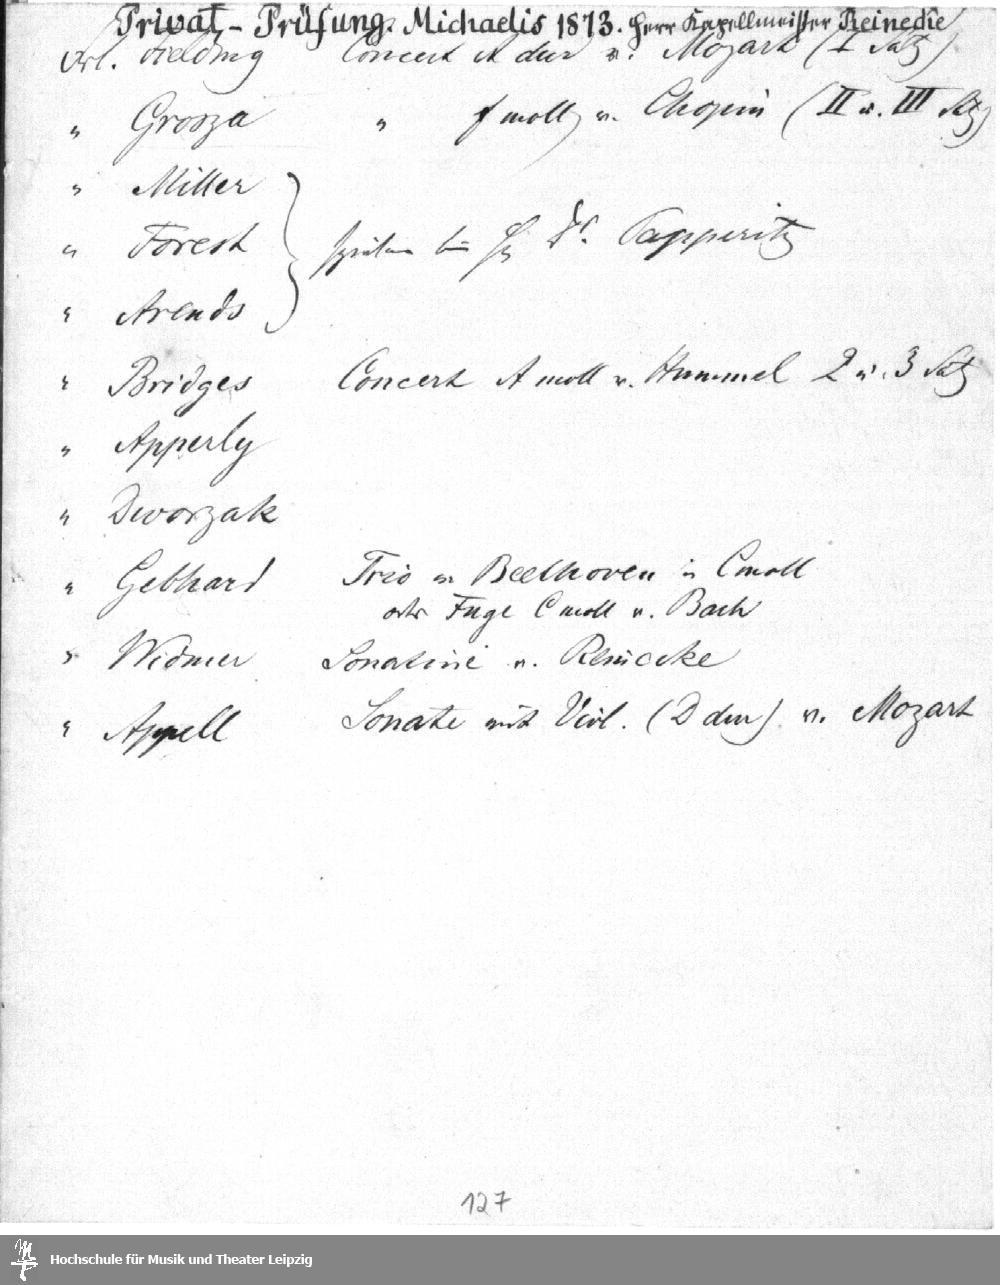 Privat-Prüfung. Michaelis 1873. Herr Kapellmeister Reinecke
Frl. Fielding Concert A dur v. Mozart (I Satz)
" Grosza " f moll v. Chopin (II u. III Satz)
" Miller
" Forest spielen bei H Dr. Papperitz
" Arends
" Bridges Concert A moll v. Hummel 2 u. 3 Satz
" Apperly
" Dworzak
" Gebhard Trio v. Beethoven in C moll
oder Fuge C moll v. Bach
" Widmer Sonatine v. Reinecke
" Appell Sonate mit Viol. (D dur) v. Mozart
127
Hochschule für Musik und Theater Leipzig